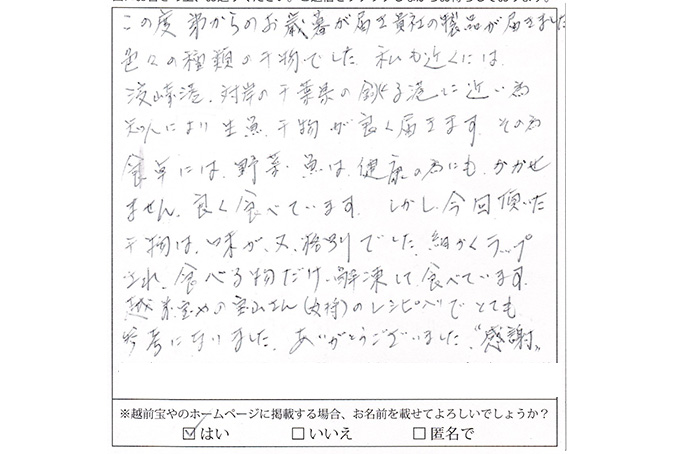 この度弟からのお歳暮が届き貴社の製品が届きました
色々の種類の干物でした。私も近くには
港、対岸の千葉県の銚子港に近い為
知人により生魚、干物が良く届きます。その為
食卓には、野菜、魚は、健康の為にも、かかせ
ません。良く食べています。しかし、今回頂いた
干物は、味が、又、格別でした。細かくラップ
され、食べる物だけ、解凍して、食べています。
越前宝やの宝山さん(女将)のレシピでとても
参考になりました。ありがとうございました。"感謝"
※越前宝やのホームページに掲載する場合、お名前を載せてよろしいでしょうか？
☑はい □いいえ □匿名で